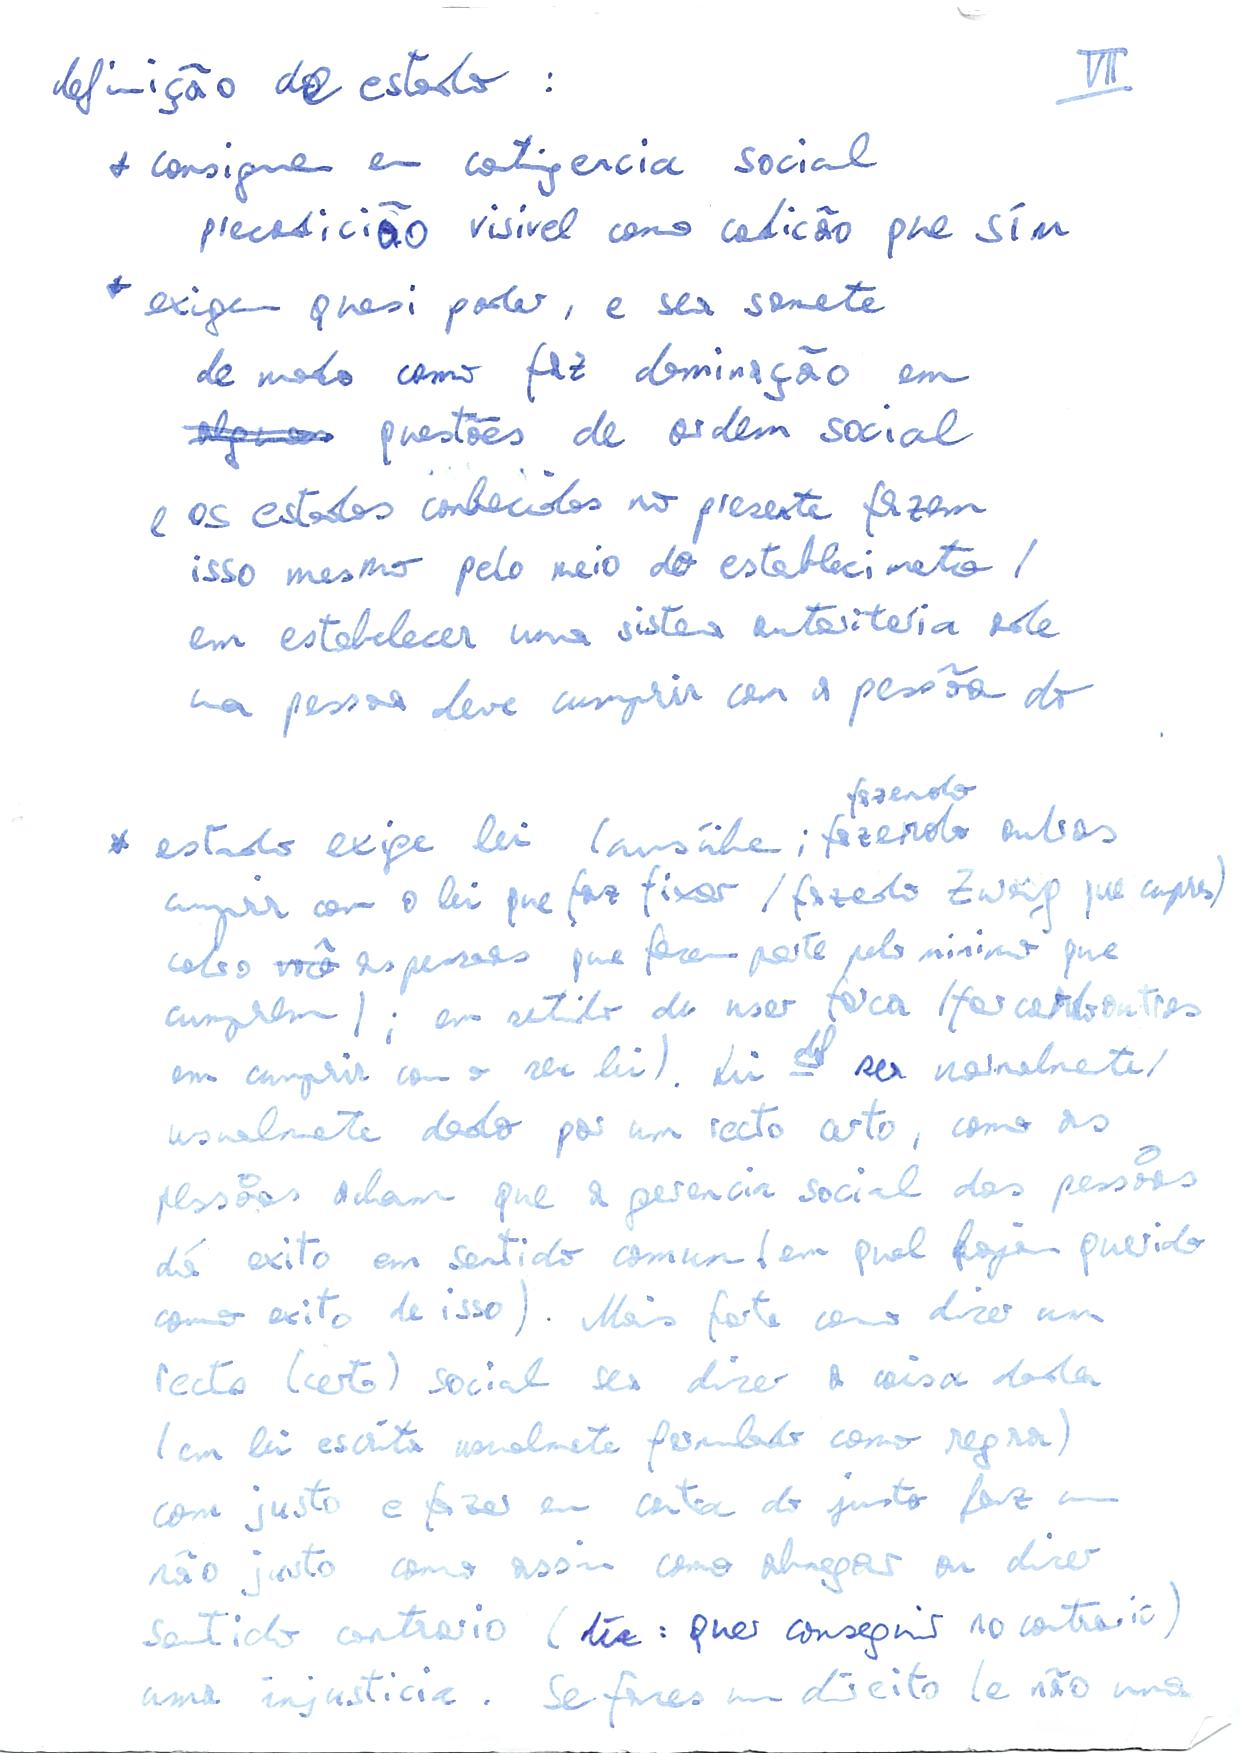 definição de estado : VII
* consiguem em cotigencia social
precodicião visivel como codicão que sím
* exigem quasi poder, e seu somete
de modo como faz dominação em
questões de ordem social
e os estados conhecidos no presente fazem
isso mesmo pelo meio do establecimeto /
em estabelecer uma sistema autoriteria
na pessoa deve cumprir com a pessõa do
fazendo
* estado exige lei ; fazendo outros
cumprir com o lei que faz fixar / fazedo Zwang que cupres)
as pessoas que fazem parte pelo minimo que
cumprem) ; em setido de usar forca (forcando outros
em cumprir com o seu lei). Lei ser normalmete/
usualmete dado por um recto certo, como as
pessõas acham que a gerencia social das pessõas
dá exito em sentido comum (em qual hajam querido
como exito de isso). Mais forte como dizer um
recto (certo) social seu dizer a coisa dada
(em lei escrita usualmete formulado como regra)
com justo e fazer em contra do justo faz um
não justo como assim como abnegar ou dizer
sentido contrario ( : quer conseguir no contrario)
uma injusticia. Se fazes um direito (e não uma